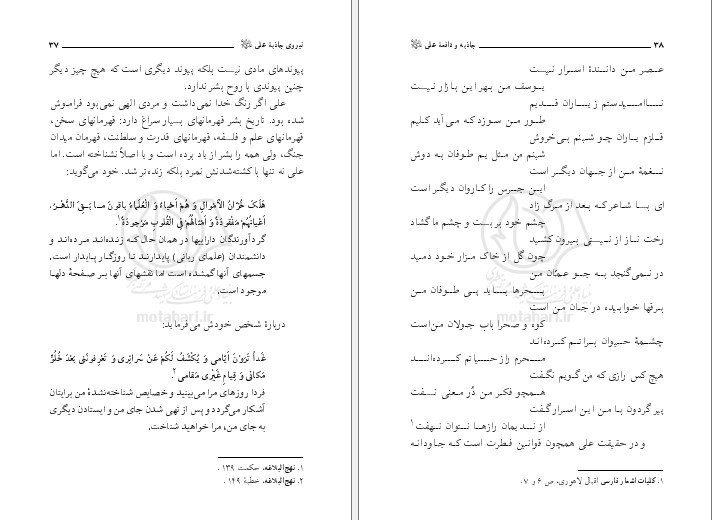 نیروی جاذبهٔ علی ۳۷
پیوندهای مادی نیست بلکه پیوند دیگری است که هیچ چیز دیگر
چنین پیوندی با روح بشر ندارد.
علی اگر رنگ خدا نمی‌داشت و مردی الهی نمی‌بود فراموش
شده بود. تاریخ بشر قهرمانهای بسیار سراغ دارد: قهرمانهای سخن،
قهرمانهای علم و فلسفه، قهرمانهای قدرت و سلطنت، قهرمان میدان
جنگ، ولی همه را بشر از یاد برده است و یا اصلاً نشناخته است. اما
علی نه تنها با کشته‌شدنش نمرد بلکه زنده‌تر شد. خود می‌گوید:
هَلَکَ خُزّانُ الْأمْوالِ وَ هُمْ اَحْیاءٌ وَ الْعُلَماءُ باقونَ ما بَقِیَ الدَّهْرُ،
اَعْیانُهُمْ مَفْقودَةٌ وَ اَمْثالُهُمْ فِی الْقُلوبِ مَوْجودَةٌ ۱.
گردآورندگان داراییها در همان حال که زنده‌اند مرده‌اند و
دانشمندان (علمای ربانی) پایدارند تا روزگار پایدار است.
جسمهای آنها گمشده است اما نقشهای آنها بر صفحهٔ دلها
موجود است.
دربارهٔ شخص خودش می‌فرماید:
غَداً تَرَوْنَ اَیّامی وَ یُکْشَفُ لَکُمْ عَنْ سَرائِری وَ تَعْرِفونَنی بَعْدَ خُلُوِّ
مَکانی وَ قِیامِ غَیْری مَقامی ۲.
فردا روزهای مرا می‌بینید و خصایص شناخته‌نشدهٔ من برایتان
آشکار می‌گردد و پس از تهی شدن جای من و ایستادن دیگری
به جای من، مرا خواهید شناخت.
۱. نهج‌البلاغه، حکمت ۱۳۹.
۲. نهج‌البلاغه، خطبهٔ ۱۴۹.
motahari.ir
۳۸ جاذبه و دافعهٔ علی
عصر من دانندهٔ اسرار نیست
یوسف من بهر این بازار نیست
ناامیدستم ز یاران قدیم
طور من سوزد که می‌آید کلیم
قلزم یاران چو شبنم بی‌خروش
شبنم من مثل یم طوفان به دوش
نغمهٔ من از جهان دیگر است
این جرس را کاروان دیگر است
ای بسا شاعر که بعد از مرگ زاد
چشم خود بربست و چشم ما گشاد
رخت ناز از نیستی بیرون کشید
چون گل از خاک مزار خود دمید
در نمی‌گنجد به جو عمّان من
بحرها باید پی طوفان من
برقها خوابیده در جان من است
کوه و صحرا باب جولان من است
چشمهٔ حیوان براتم کرده‌اند
محرم راز حیاتم کرده‌اند
هیچ کس رازی که من گویم نگفت
همچو فکر من دُر معنی نسفت
پیر گردون با من این اسرار گفت
از ندیمان رازها نتوان نهفت ۱
و در حقیقت علی همچون قوانین فطرت است که جاودانه
۱. کلیات اشعار فارسی اقبال لاهوری، ص ۶ و ۷.
motahari.ir